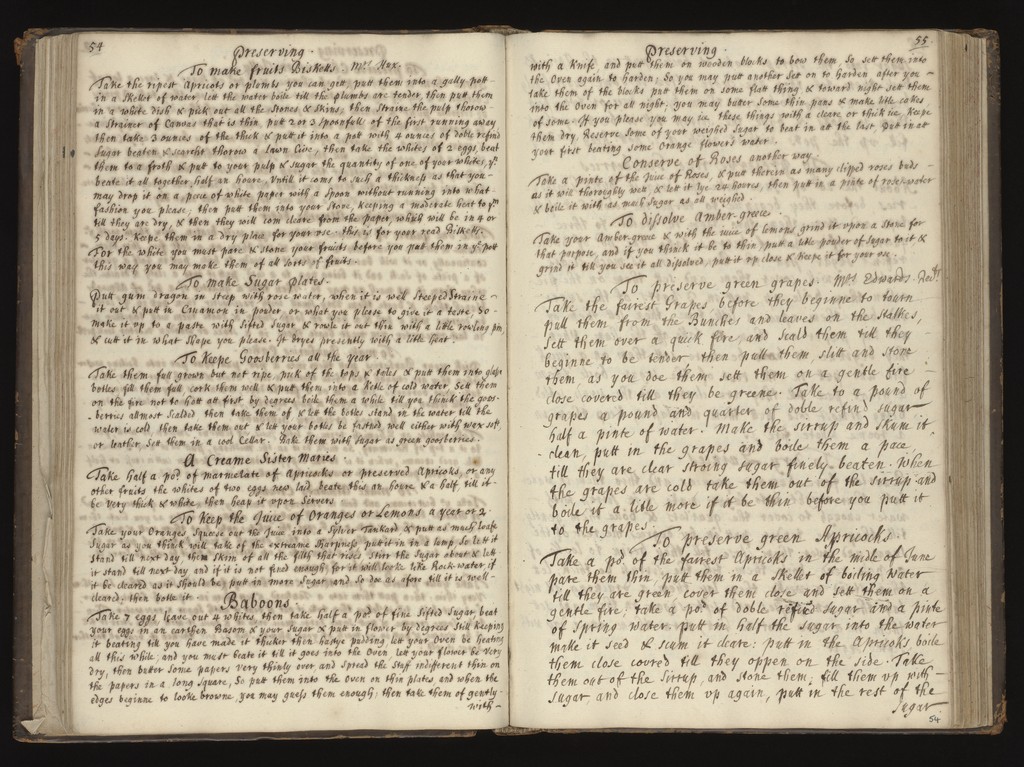 54
Preserving.
To make fruits Biskets. Mrs Hex.
Take the ripest Apricots or plumbs you can gett, put them into a gally pott
in a skellet of water, lett the water boile till the plumbs are tender, then putt them
in a white dish & pick out all the stones & skins, then straine the pulp thorow
a strainer of Canvas that is thin, put 2 or 3 spoonfull of the first running away
then take 3 ounces of the thick & putt it into a pott with 4 ounces of doble refind
sugar beaten & searcht thorow a lawn Cive, then take the whites of 2 eggs, beat
them to a froth & put to your pulp & sugar the quantity of one of your whites, yn
beate it all together, half an houre, Untill it coms to such a thickness as that you
may drop it on a piece of white paper with a spoon without running into what
fashion you please, then putt them into your stove, keeping a moderate heat to ym
till they are dry, & then they will com cleare from the paper, which will be in 4 or
5 days. Keepe them in a dry place for your use. this is for your read Biskets.
For the white you must pare & stone your fruits before you putt them in ye pott
this way you may make them of all sorts of fruits.
To make Sugar plates.
Putt gum dragon in steep with rose water, when it is well steeped Straine
it out & putt in Cinamon in pouder or what you please to give it a taste, So
make it up to a paste with sifted sugar & rowle it out thin with a little rowling pin,
& cutt it in what shape you please. It dryes presently with a little heat.
To Keepe Goosberries all the year
Take them full grown but not ripe pick of the tops & tales & putt them into glass
botles, fill them full, cork them well & putt them into a Ketle of cold water. Sett them
on the fire not to hott att first by degrees boile them a while till you think the goos-
berries allmost scalded then take them of & lett the botles stand in the water till the
water is cold then take them out & lett your botles be fastned well either with wax soft
or leather. Sett them in a cool Cellar. Bake them with sugar as green goosberries.
A Creame Sister Maries.
Take half a pod. of marmelate of Apricoks or preserved Apricoks, or any
other fruits the whites of two eggs new laid beate this an houre & a half till it
be very thick & white, then heap it upon Sirvers
To Keep the Juice of Oranges or Lemons a year or 2
Take your Oranges Squese out the Juice into a Sylver Tankard & putt as much loafe
Sugar as you think will take of the extreame sharpness putt it in a lump. So lett it
stand till next day, them skim of all the filth that rises. Stirr the Sugar about & lett
it stand till next day and if it is not fined enough for it will looke like Rock water, if
it be cleared as it should be, putt in more Sugar and So doe as afore till it is well
cleared. then botle it.
Baboons.
Take 7 eggs leave out 4 whites, then take half a pod of fine sifted sugar, beat
your eggs in an earthen Bason & your sugar & putt in flower by degrees still keeping
it beating till you have made it thicker then hastye pudding lett your Oven be heating
all this while, and you must beate it till it goes into the Oven lett your flower be very
dry, then buter some papers very thinly over and spread the stuf indifferent thin on
the papers in a long square, So putt them into the oven on thin plates and when the
edges beginne to looke browne, you may guess them enough: then take them of gently
with
55
Preserving.
with a Knife, and putt them on wooden blocks to bow them. So sett them into
the Oven again to harden, So you may putt another sett on to harden after you
take them of the blocks putt them on some flatt thing & toward night sett them
into the Oven for all night: you may buter some thin pans & make litle cakes
of some. If you please you may ice these things with a cleare or thick ice, keepe
them dry. Reserve some of your weighed sugar to beat in at the last. Put in at
your first beating some Orange flowers water.
Conserve of Roses another way
Take a pinte of the Juice of Roses, & putt therein as many cliped roses buds
as it will thoroughly wett & lett it lye 24 houres, then putt in a pinte of rose-water
& boile it with as much sugar as all weighed
To disolve Amber-greece.
Take your Amber-greece & with the juice of lemons grind it upon a stone for
that purpose, and if you think it be to thin, putt a little pouder of sugar to it &
grind it till you see it all disolved, putt it up close & Keepe it for your use.
To preserve green grapes. Mrs Edwards.
Take the fairest Grapes before they beginne to tourn
pull them from the Bunches and leaves on the Stalkes,
Sett them over a quick fire, and scald them till they
beginne to be tender then pull them, slitt and stone
them, as you doe them sett them on a gentle fire
close covered till they be greene. Take to a pound of
grapes a pound and quarter of doble refind sugar
half a pinte of water. Make the sirrup and skum it
clean, putt in the grapes and boile them a pace
till they are clear strong sugar finely beaten. When
the grapes are cold take them out of the sirrup and
boile it a litle more if it be thin before you putt it
to the grapes.
To preserve green Apricocks
Take a pd. of the fairest Apricks in the midle of June
pare them thin putt them in a Skellet of boiling water
till they are green cover them close and sett them on a
gentle fire, take a pod. of doble refied sugar and a pinte
of spring water. putt in half the sugar into the water
make it seed & scum it cleare: putt in the Apricoks boile
them close covred till they oppen on the side. Take
them out of the sirrup, and stone them; fill them up with
sugar, and close them up again, putt in the rest of the
Sugar
54